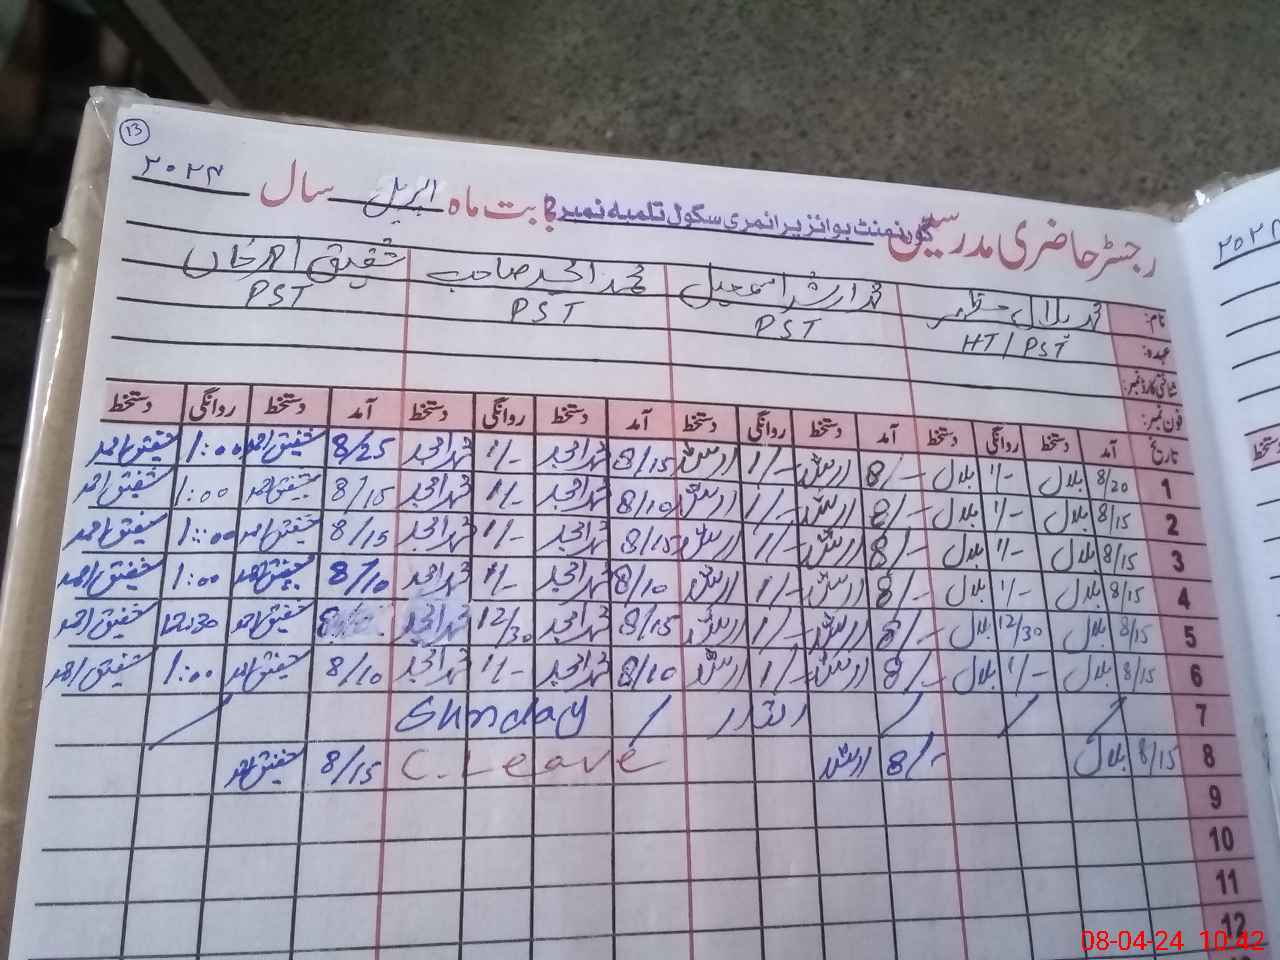 13
رجسٹر حاضری مدرسین گورنمنٹ بوائز پرائمری سکول تلمبہ نمبر 2 بابت ماہ اپریل سال ۲۰۲۴
۲۰۲۴
نام: محمد بلال محمد ارشد اسمعیل محمد امجد صاحب شفیق احمد خان
عہدہ: HT / PST PST PST PST
شناختی کارڈ نمبر:
فون نمبر:
تاریخ آمد دستخط روانگی دستخط آمد دستخط روانگی دستخط آمد دستخط روانگی دستخط آمد دستخط روانگی دستخط
دستخط
1 8/20 بلال 1/- بلال 8/- ارشد 1/- ارشد 8/15 محمد امجد 1/- محمد امجد 8/25 شفیق احمد 1:00 شفیق احمد
2 8/15 بلال 1/- بلال 8/- ارشد 1/- ارشد 8/10 محمد امجد 1/- محمد امجد 8/15 شفیق احمد 1:00 شفیق احمد
3 8/15 بلال 1/- بلال 8/- ارشد 1/- ارشد 8/15 محمد امجد 1/- محمد امجد 8/15 شفیق احمد 1:00 شفیق احمد
4 8/15 بلال 1/- بلال 8/- ارشد 1/- ارشد 8/10 محمد امجد 1/- محمد امجد 8/10 شفیق احمد 1:00 شفیق احمد
5 8/15 بلال 12/30 بلال 8/- ارشد 1/- ارشد 8/15 محمد امجد 12/30 محمد امجد شفیق احمد 12:30 شفیق احمد
6 8/15 بلال 1/- بلال 8/- ارشد 1/- ارشد 8/10 محمد امجد 1/- محمد امجد 8/10 شفیق احمد 1:00 شفیق احمد
7 / / / اتوار / Sunday /
8 8/15 بلال 8/- ارشد C. Leave 8/15 شفیق احمد
9
10
11
12
08-04-24 10:42